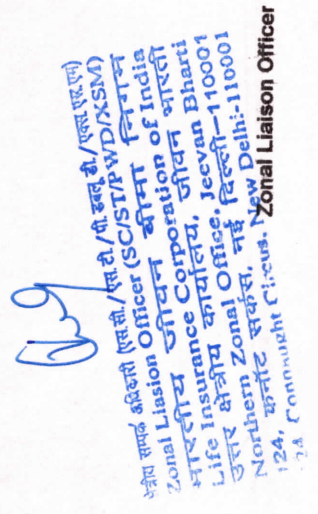 क्षेत्रीय सम्पर्क अधिकारी (एस.सी./एस.टी./पी.डब्लू.डी./एक्स.एस.एम)
Zonal Liasion Officer (SC/ST/PWD/XSM)
भारतीय जीवन बीमा निगम
Life Insurance Corporation of India
उत्तर क्षेत्रीय कार्यालय, जीवन भारती
Northern Zonal Office, Jeevan Bharti
124, कनॉट सर्कस, नई दिल्ली-110001
124 Connaught Circus, New Delhi-110001
Zonal Liaison Officer